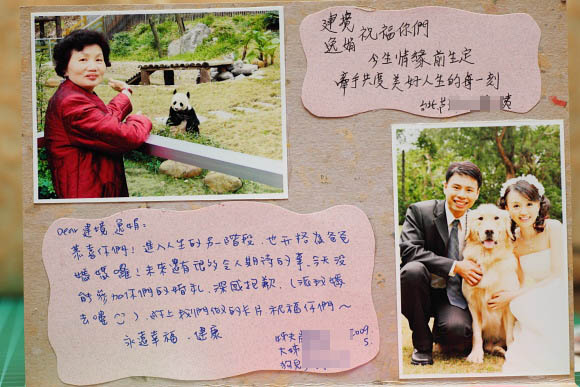 建璄
逸娟 祝福你們
今生情緣前生定
牽手共度美好人生的每一刻
Dear 建璄 逸娟:
恭喜你們!進入人生的另一階段,也升格為爸爸
媽媽囉!未來還有很多令人期待的事,今天沒
能參加你們的婚禮,深感抱歉,(派叔嬸
去嘍☺),附上我們做的卡片祝福你們~
永遠幸福、健康
2009.
大妹
5.